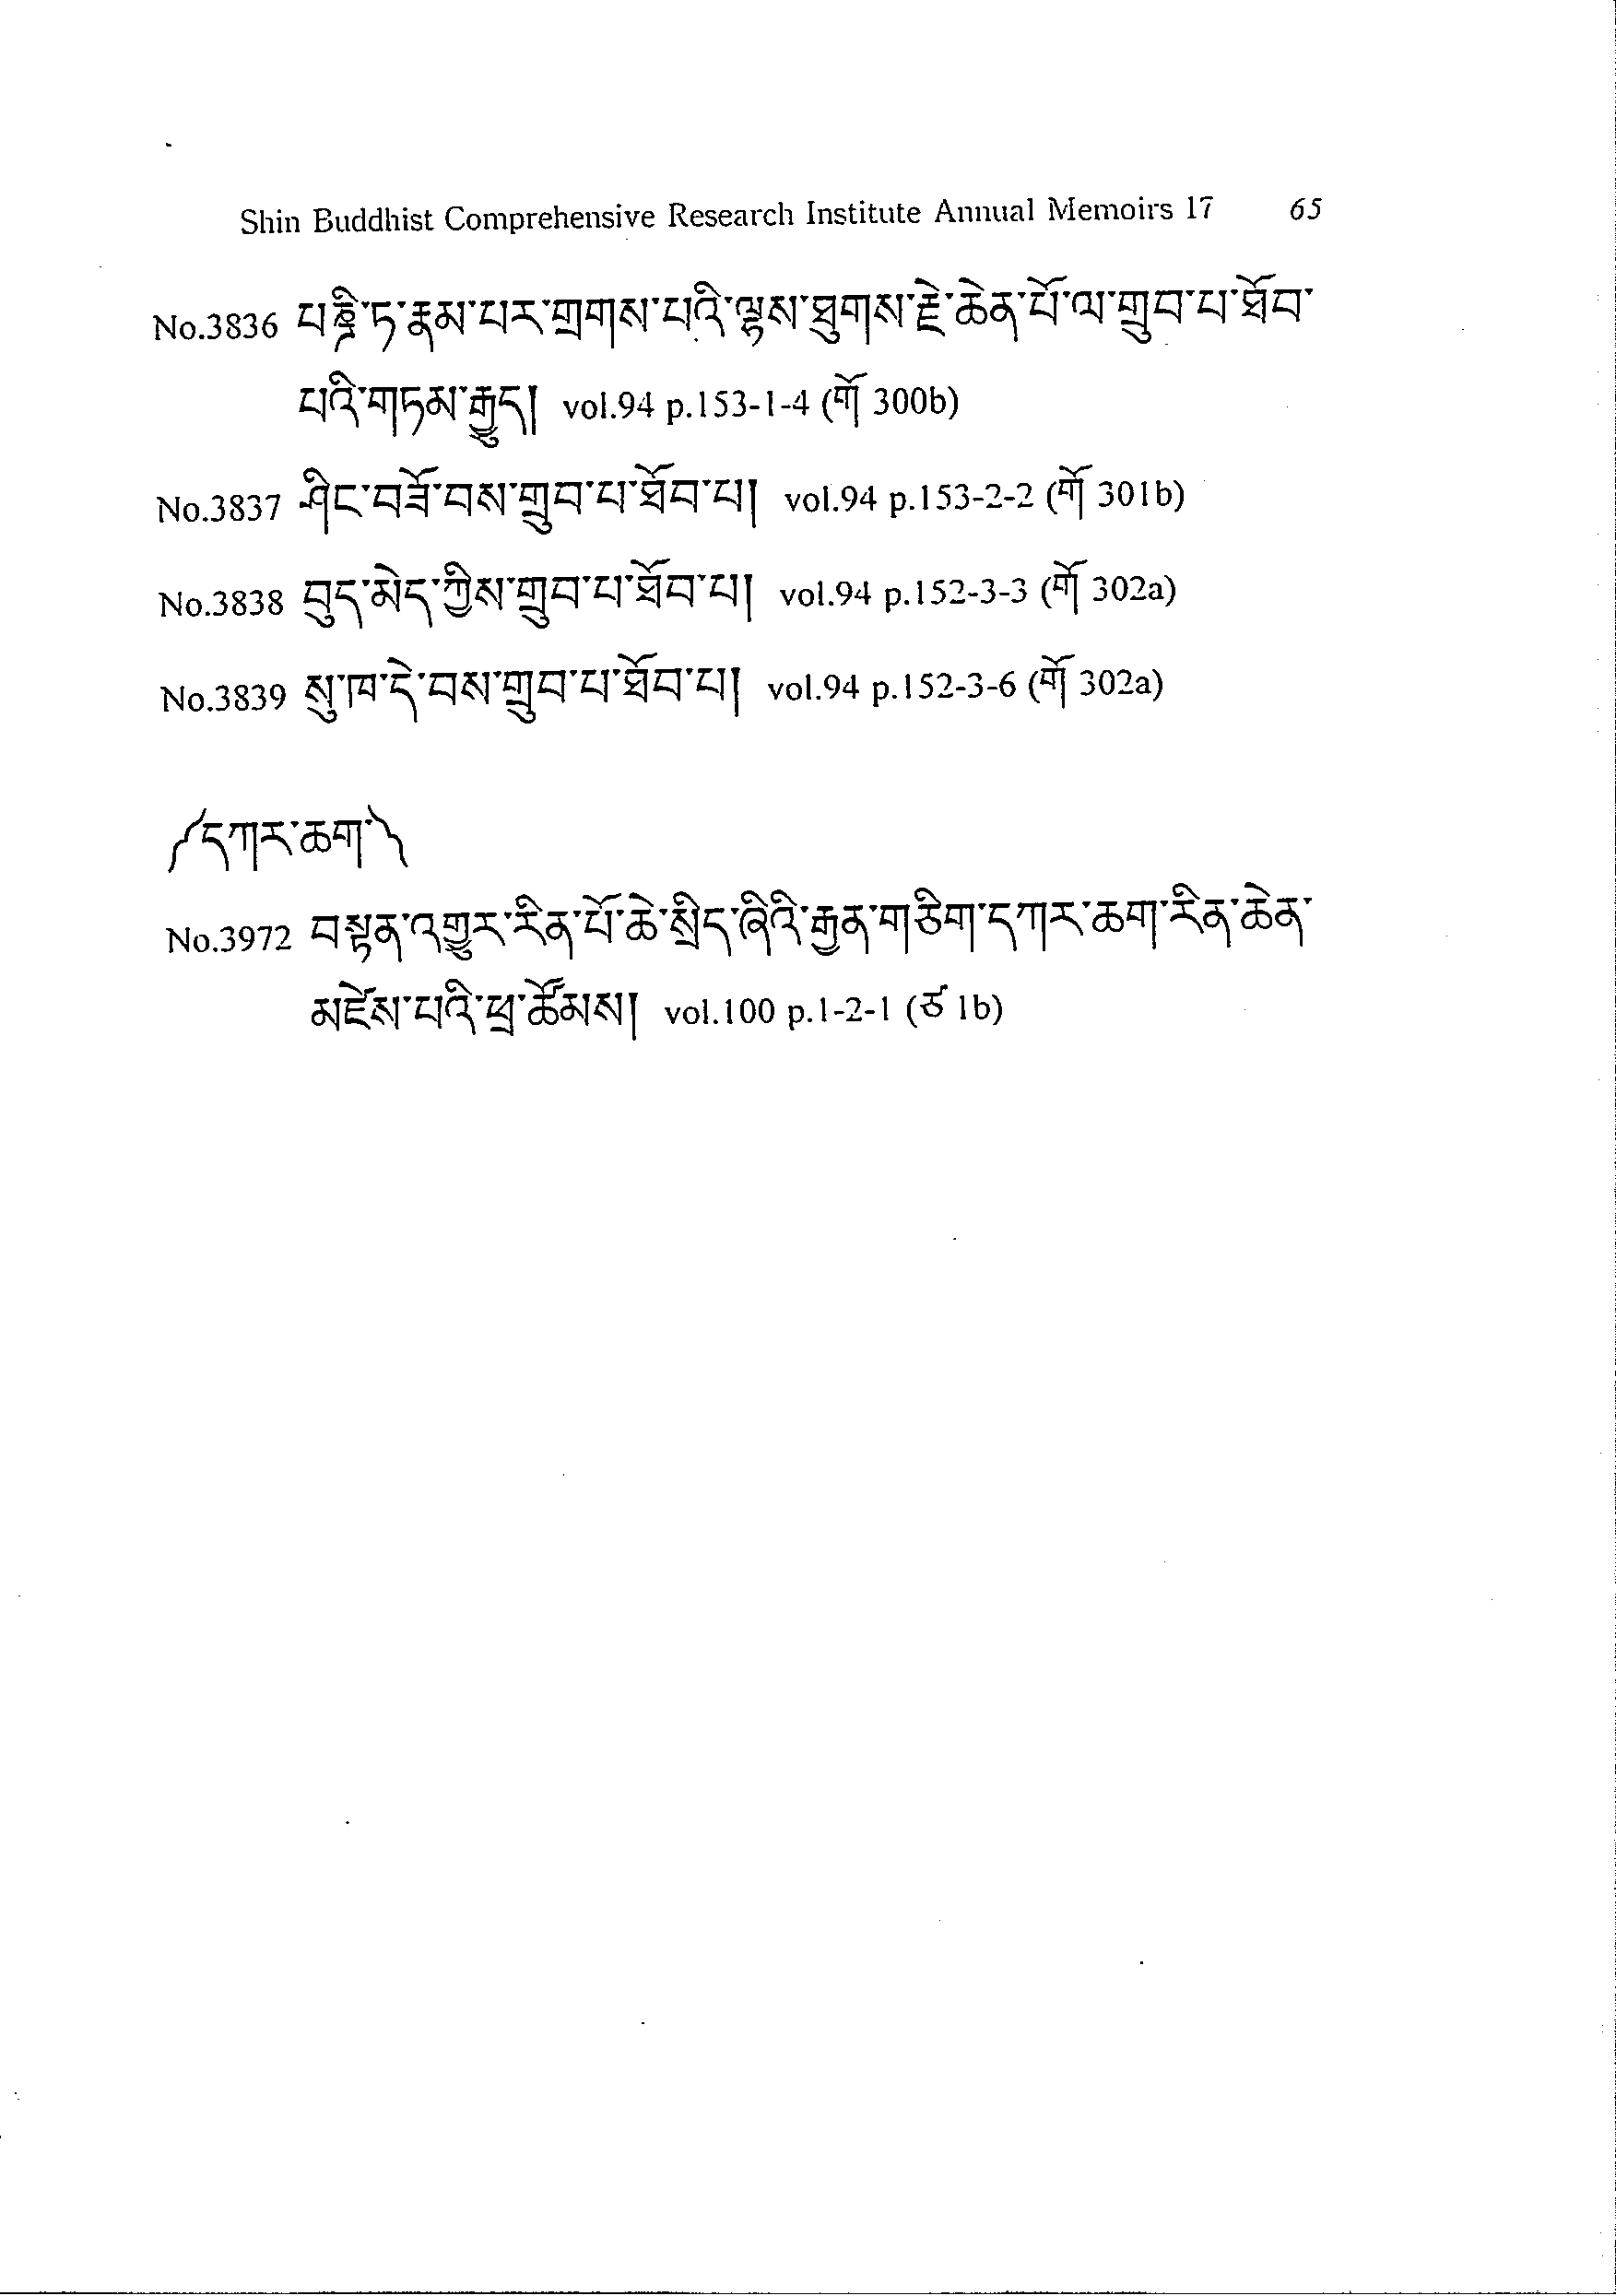 Shin Buddhist Comprehensive Research Institute Annual Memoirs 17 65
No.3836 པཎྜི་ཏ་རྣམ་པར་གྲགས་པའི་ལྷས་ཐུགས་རྗེ་ཆེན་པོ་ལ་གྲུབ་པ་ཐོབ་
པའི་གཏམ་རྒྱུད། vol.94 p.153-1-4 (གོ 300b)
No.3837 ཤིང་བཟོ་བས་གྲུབ་པ་ཐོབ་པ། vol.94 p.153-2-2 (གོ 301b)
No.3838 བུད་མེད་ཀྱིས་གྲུབ་པ་ཐོབ་པ། vol.94 p.152-3-3 (གོ 302a)
No.3839 སུ་ཁ་དེ་བས་གྲུབ་པ་ཐོབ་པ། vol.94 p.152-3-6 (གོ 302a)
༼དཀར་ཆག་༽
No.3972 བསྟན་འགྱུར་རིན་པོ་ཆེ་སྲིད་ཞིའི་རྒྱན་གཅིག་དཀར་ཆག་རིན་ཆེན་
མཛེས་པའི་ཕྲ་ཚོམས། vol.100 p.1-2-1 (ཙ 1b)